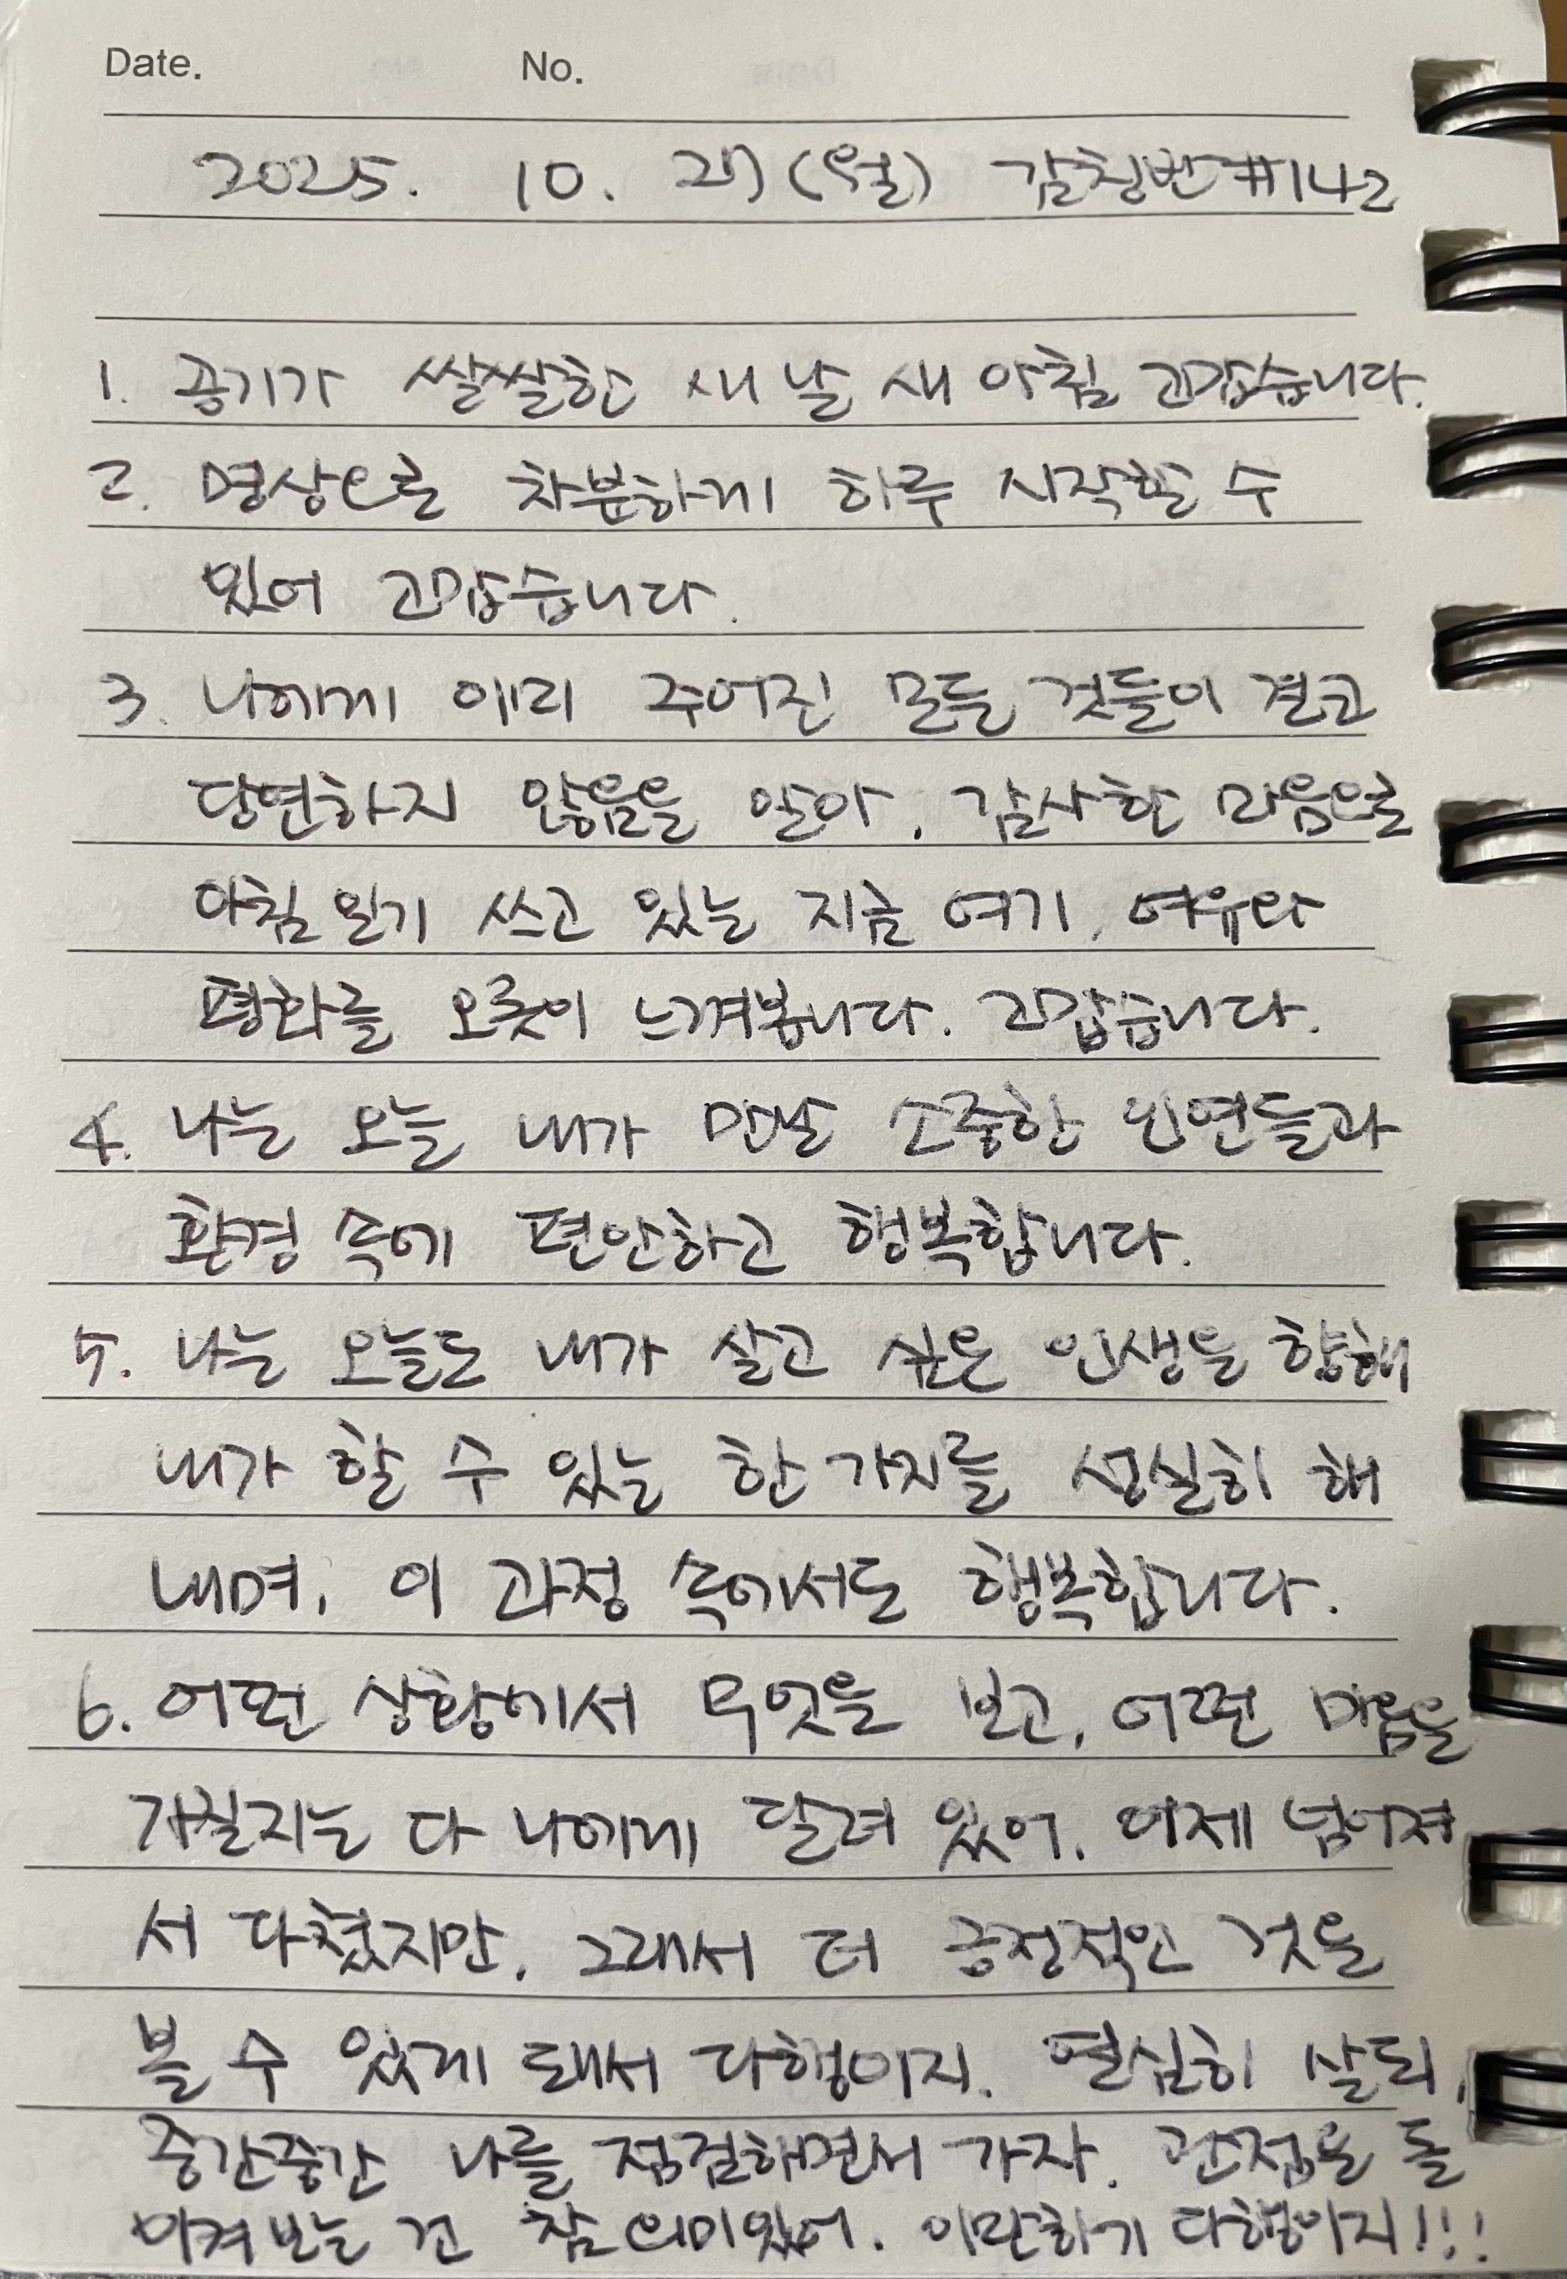 Date. No.
2025. 10. 27 (월) 감칭반#142
1. 공기가 쌀쌀한 새 날 새 아침 고맙습니다.
2. 명상으로 차분하게 하루 시작할 수
있어 고맙습니다.
3. 나에게 이미 주어진 모든 것들이 결코
당연하지 않음을 알아, 감사한 마음으로
아침 일기 쓰고 있는 지금 여기, 여유와
평화를 오롯이 느껴봅니다. 고맙습니다.
4. 나는 오늘 내가 만날 소중한 인연들과
환경 속에 편안하고 행복합니다.
5. 나는 오늘도 내가 살고 싶은 인생을 향해
내가 할 수 있는 한 가지를 성실히 해
내며, 이 과정 속에서도 행복합니다.
6. 어떤 상황에서 무엇을 보고, 어떤 마음을
가질지는 다 나에게 달려 있어. 어제 넘어져
서 다쳤지만, 그래서 더 긍정적인 것을
볼 수 있게 돼서 다행이지. 열심히 살되,
중간중간 나를 점검하면서 가자. 관점을 돌
이켜보는 건 참 의미있어. 이만하기 다행이지!!!